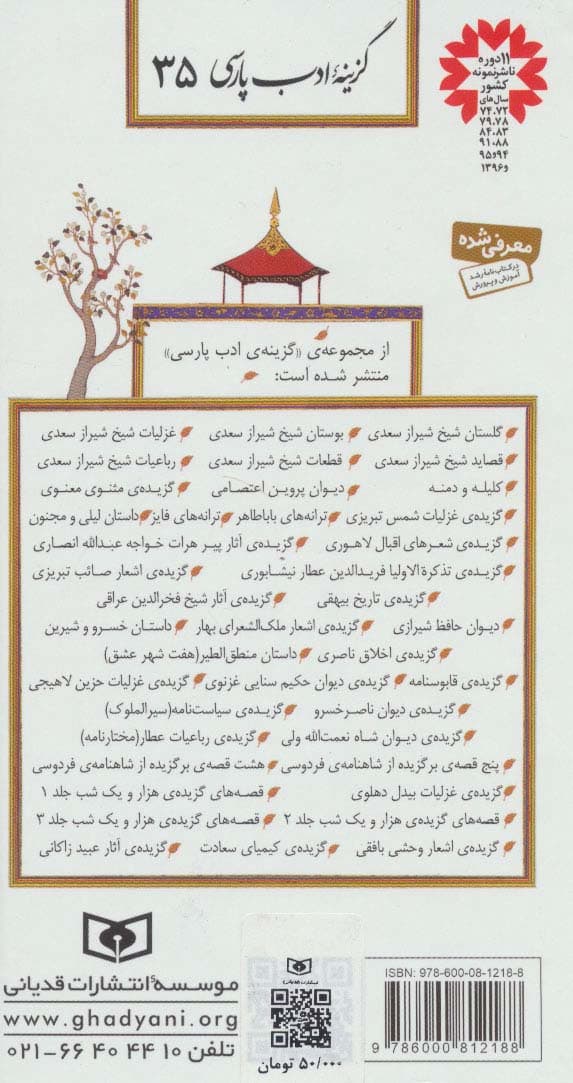 گزینهٔ ادب پارسی ۳۵
۱۱ دوره
ناشر نمونه
کشور
سال‌های
۷۴،۷۲
۷۹،۷۸
۸۴،۸۳
۹۱،۸۸
۹۴و۹۵
و۱۳۹۶
معرفی شده
در کتاب‌نامهٔ رشد
آموزش و پرورش
از مجموعه‌ی «گزینه‌ی ادب پارسی»
منتشر شده است:
گلستان شیخ شیراز سعدی بوستان شیخ شیراز سعدی غزلیات شیخ شیراز سعدی
قصاید شیخ شیراز سعدی قطعات شیخ شیراز سعدی رباعیات شیخ شیراز سعدی
کلیله و دمنه دیوان پروین اعتصامی گزیده‌ی مثنوی معنوی
گزیده‌ی غزلیات شمس تبریزی ترانه‌های باباطاهر ترانه‌های فایز داستان لیلی و مجنون
گزیده‌ی شعرهای اقبال لاهوری گزیده‌ی آثار پیر هرات خواجه عبدالله انصاری
گزیده‌ی تذکرة الاولیا فریدالدین عطار نیشابوری گزیده‌ی اشعار صائب تبریزی
گزیده‌ی تاریخ بیهقی گزیده‌ی آثار شیخ فخرالدین عراقی
دیوان حافظ شیرازی گزیده‌ی اشعار ملک‌الشعرای بهار داستان خسرو و شیرین
گزیده‌ی اخلاق ناصری داستان منطق‌الطیر(هفت شهر عشق)
گزیده‌ی قابوسنامه گزیده‌ی دیوان حکیم سنایی غزنوی گزیده‌ی غزلیات حزین لاهیجی
گزیده‌ی دیوان ناصرخسرو گزیده‌ی سیاست‌نامه(سیرالملوک)
گزیده‌ی دیوان شاه نعمت‌الله ولی گزیده‌ی رباعیات عطار(مختارنامه)
پنج قصه‌ی برگزیده از شاهنامه‌ی فردوسی هشت قصه‌ی برگزیده از شاهنامه‌ی فردوسی
گزیده‌ی غزلیات بیدل دهلوی قصه‌های گزیده‌ی هزار و یک شب جلد ۱
قصه‌های گزیده‌ی هزار و یک شب جلد ۲ قصه‌های گزیده‌ی هزار و یک شب جلد ۳
گزیده‌ی اشعار وحشی بافقی گزیده‌ی کیمیای سعادت گزیده‌ی آثار عبید زاکانی
موسسهٔ انتشارات قدیانی
www.ghadyani.org
تلفن ۱۰ ۴۴ ۴۰ ۶۶-۰۲۱
انتشارات قدیانی
۵۰/۰۰۰ تومان
ISBN: 978-600-08-1218-8
9 786000 812188